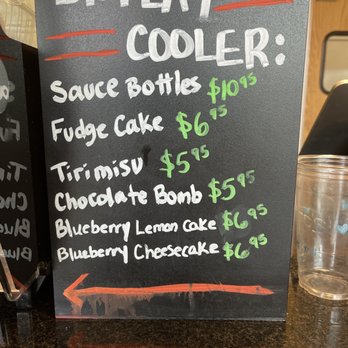 COOLER:
Sauce Bottles $10⁹⁵
Fudge Cake $6⁹⁵
Tirimisu $5⁹⁵
Chocolate Bomb $5⁹⁵
Blueberry Lemon Cake $6⁹⁵
Blueberry Cheesecake $6⁹⁵